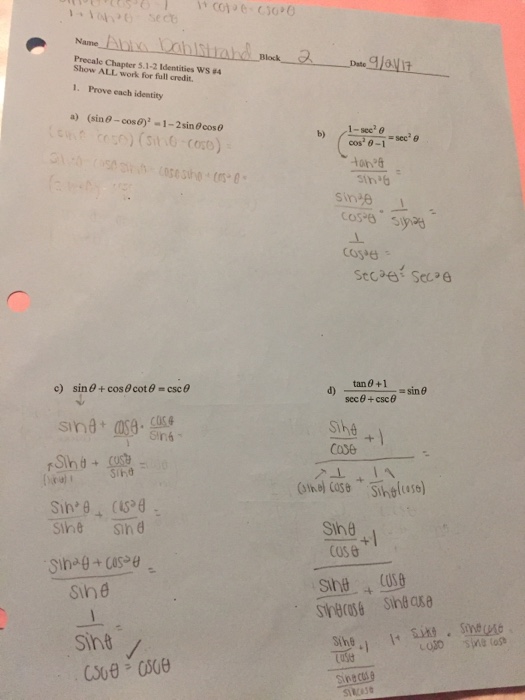 1 + cot²θ = csc²θ
secθ
Name Abha Dahlstrand Block 2 Date 9/21/17
Precalc Chapter 5.1-2 Identities WS #4
Show ALL work for full credit.
1. Prove each identity
a) (sinθ – cosθ)² = 1 – 2sinθcosθ
(sinθ - cosθ) (sinθ - cosθ)
b) (1 – sec²θ)/(cos²θ – 1) = sec²θ
tan²θ/sin²θ =
sin²θ/cos²θ · 1/sin²θ =
1/cos²θ =
sec²θ = sec²θ
c) sinθ + cosθcotθ = cscθ
sinθ + cosθ/1 · cosθ/sinθ
sinθ + cos²θ/sinθ =
sin²θ/sinθ + cos²θ/sinθ =
(sin²θ + cos²θ)/sinθ =
1/sinθ =
cscθ = cscθ ✓
d) (tanθ + 1)/(secθ + cscθ) = sinθ
sinθ/cosθ + 1
(sinθ) 1/cosθ + 1/sinθ (cosθ) =
sinθ/cosθ + 1
sinθ/sinθcosθ + cosθ/sinθcosθ
sinθ/cosθ + 1 1 + sinθ/cosθ · sinθcosθ/sinθcosθ
sinθcosθ/sinθcosθ